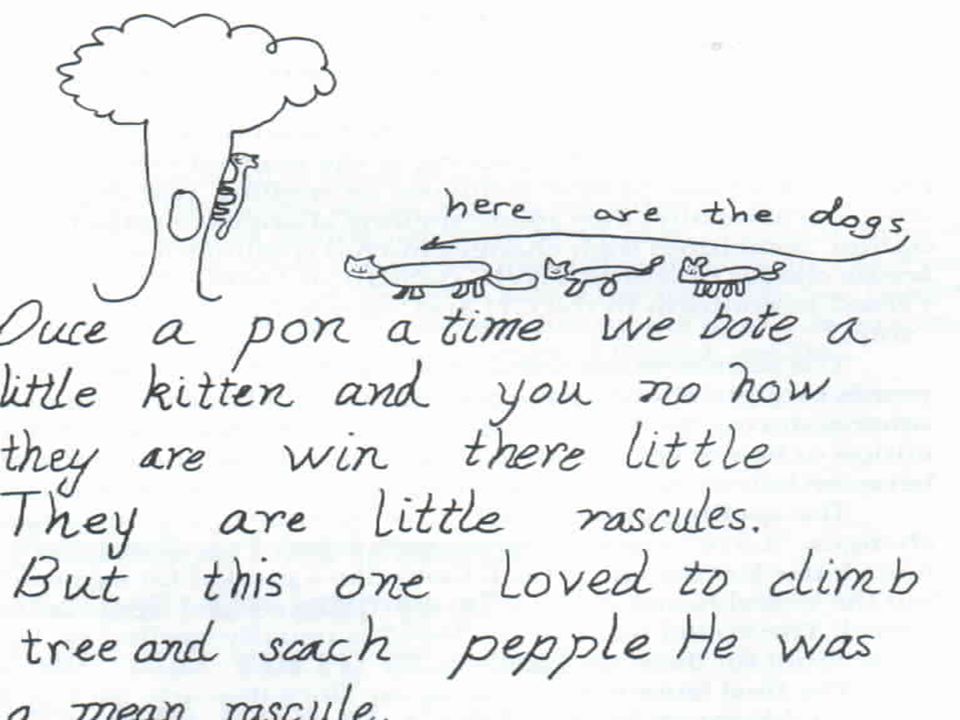 here are the dogs,
Ouce a pon a time we bote a
little kitten and you no how
they are win there little
They are little rascules.
But this one loved to climb
tree and scach pepple He was
a mean rascule.